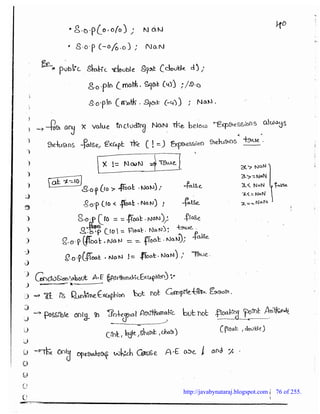 40
• S.o.p(0.0/0) ; NaN
• S.o.p(-0/0.0) ; NaN
Ex:- public static double Sqrt (double d) ;
S.o.pln (math.Sqrt (4)) ; //2.0
S.o.pln (math.Sqrt (-4)) ; NaN.
→ for any x value including NaN the below Expressions always
Returns false, Except the (!=) Expression Returns true.
X != NaN ⇒ True
at x=10
S.o.p(10 > float.NaN); false
S.o.p(10 < float.NaN) ; false
S.o.p(10 == float.NaN); false
S.o.p(10 != Float.NaN); true
S.o.p(float.NaN == float.NaN); false
S.o.p(float.NaN != float.NaN) ; True.
x > NaN
x >= NaN
x < NaN
x <= NaN
x == NaN
false
Conclusion about A.E (ArithmeticException) :-
→ It is RuntimeException but not Compiletime Error.
→ Possible only in Integral Arithmatic but not floating point Arithmetic
(int, byte, short, char) (float, double)
→ The only operators which Cause A.E are / and % .
http://javabynataraj.blogspot.com 76 of 255.